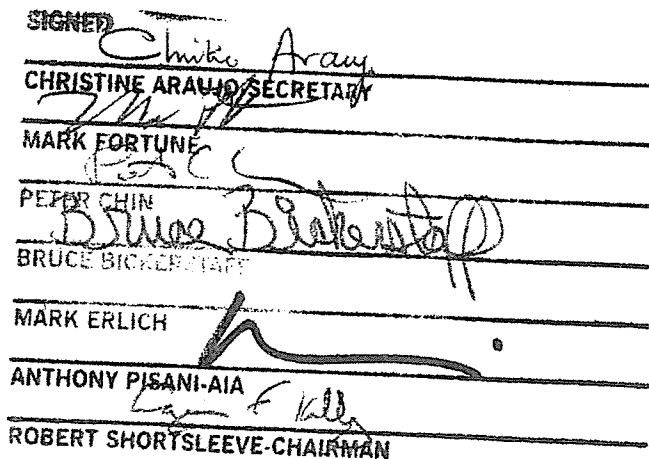 SIGNED
CHRISTINE ARAUJO, SECRETARY
MARK FORTUNE
PETER CHIN
Bruce Bickerstaff
BRUCE BICKERSTAFF
MARK ERLICH
ANTHONY PISANI-AIA
ROBERT SHORTSLEEVE-CHAIRMAN